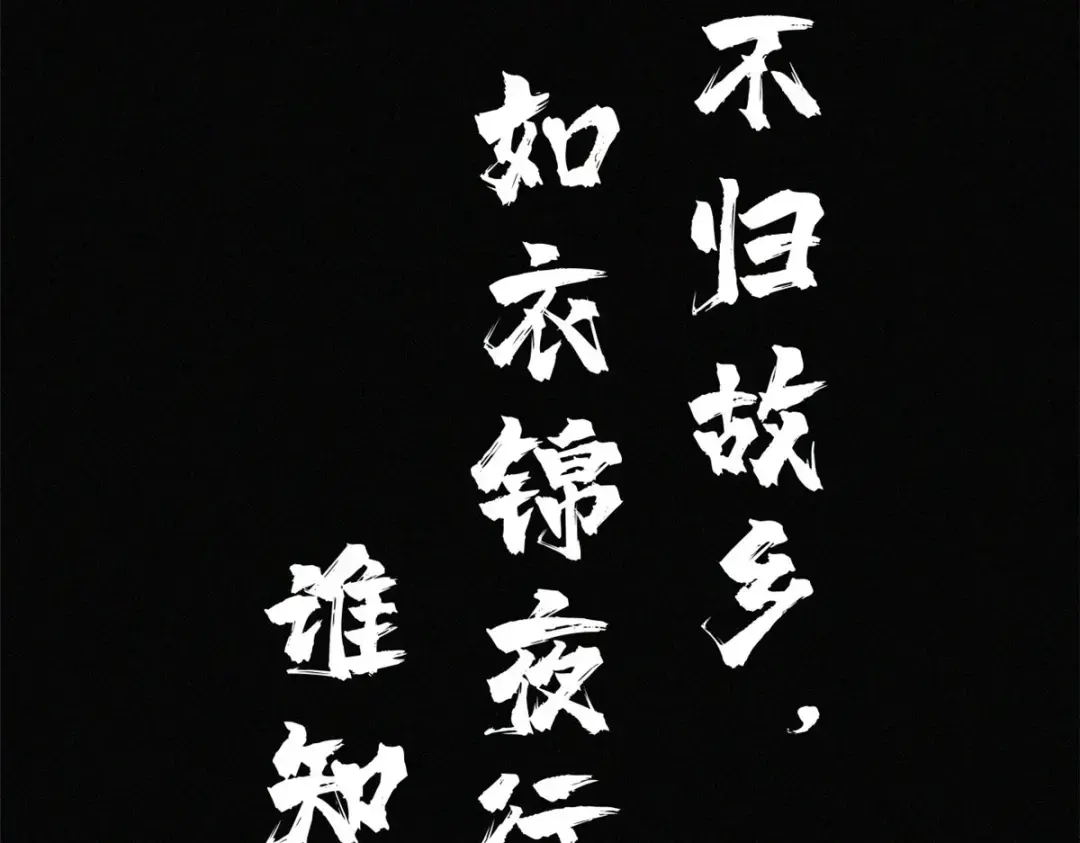 不归故乡，
如衣锦夜行
谁知